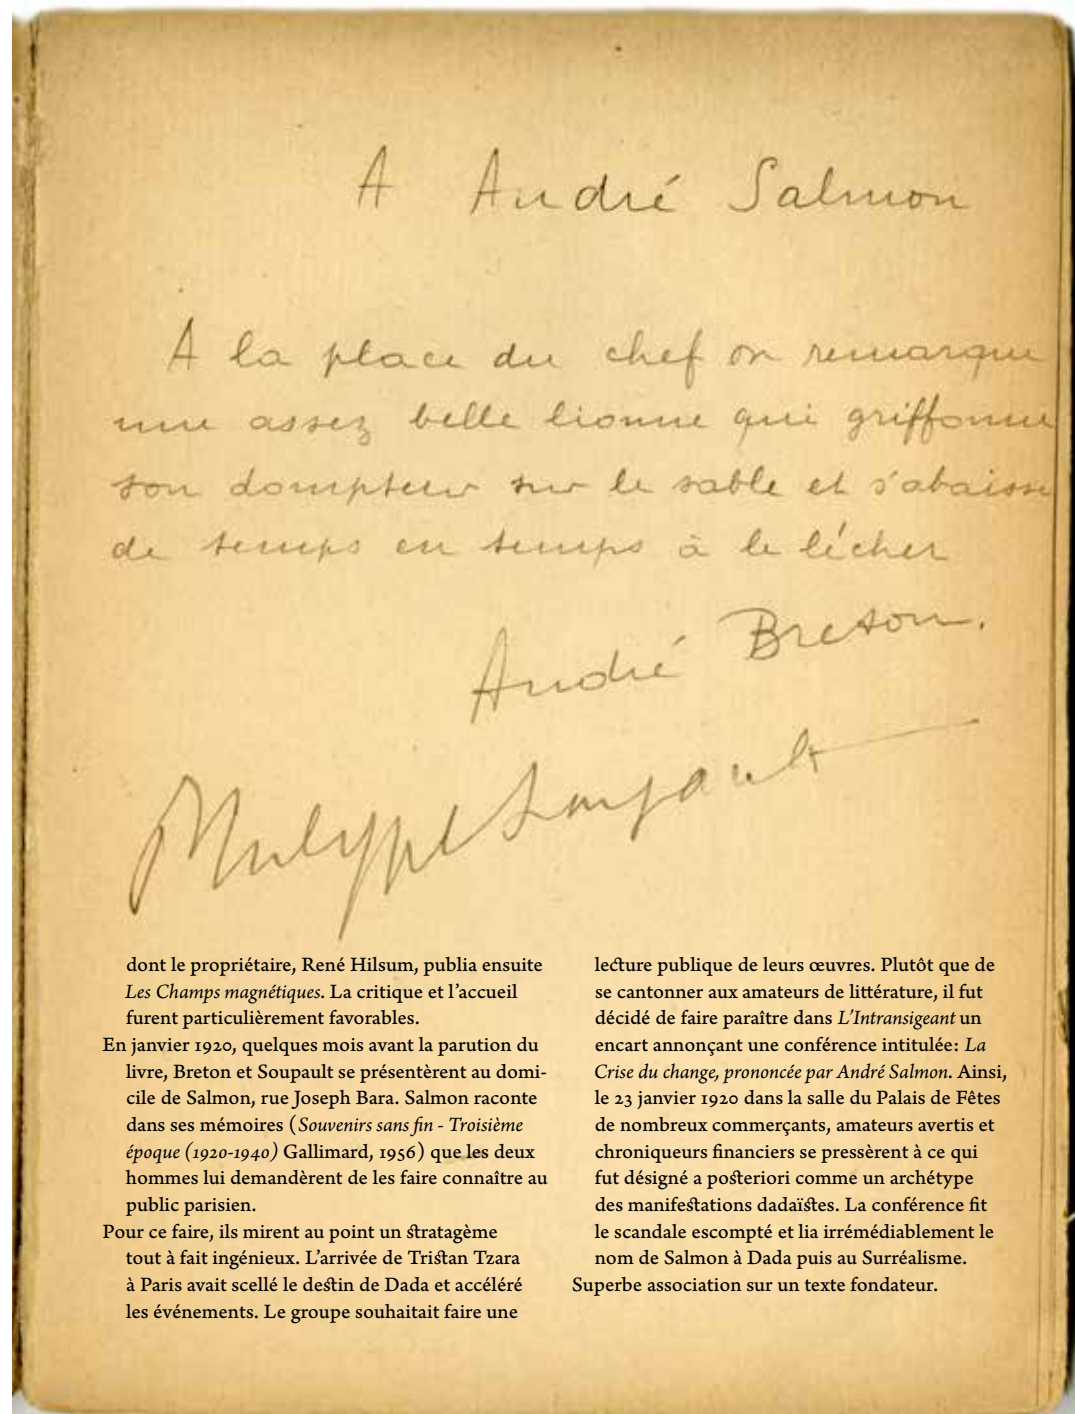 A André Salmon
A la place du chef on remarque
une assez belle lionne qui griffonne
son dompteur sur le sable et s'abaisse
de temps en temps à le lécher
André Breton.
Philippe Soupault
dont le propriétaire, René Hilsum, publia ensuite
Les Champs magnétiques. La critique et l'accueil
furent particulièrement favorables.
En janvier 1920, quelques mois avant la parution du
livre, Breton et Soupault se présentèrent au domi-
cile de Salmon, rue Joseph Bara. Salmon raconte
dans ses mémoires (Souvenirs sans fin - Troisième
époque (1920-1940) Gallimard, 1956) que les deux
hommes lui demandèrent de les faire connaître au
public parisien.
Pour ce faire, ils mirent au point un stratagème
tout à fait ingénieux. L'arrivée de Tristan Tzara
à Paris avait scellé le destin de Dada et accéléré
les événements. Le groupe souhaitait faire une
lecture publique de leurs œuvres. Plutôt que de
se cantonner aux amateurs de littérature, il fut
décidé de faire paraître dans L'Intransigeant un
encart annonçant une conférence intitulée: La
Crise du change, prononcée par André Salmon. Ainsi,
le 23 janvier 1920 dans la salle du Palais de Fêtes
de nombreux commerçants, amateurs avertis et
chroniqueurs financiers se pressèrent à ce qui
fut désigné a posteriori comme un archétype
des manifestations dadaïstes. La conférence fit
le scandale escompté et lia irrémédiablement le
nom de Salmon à Dada puis au Surréalisme.
Superbe association sur un texte fondateur.